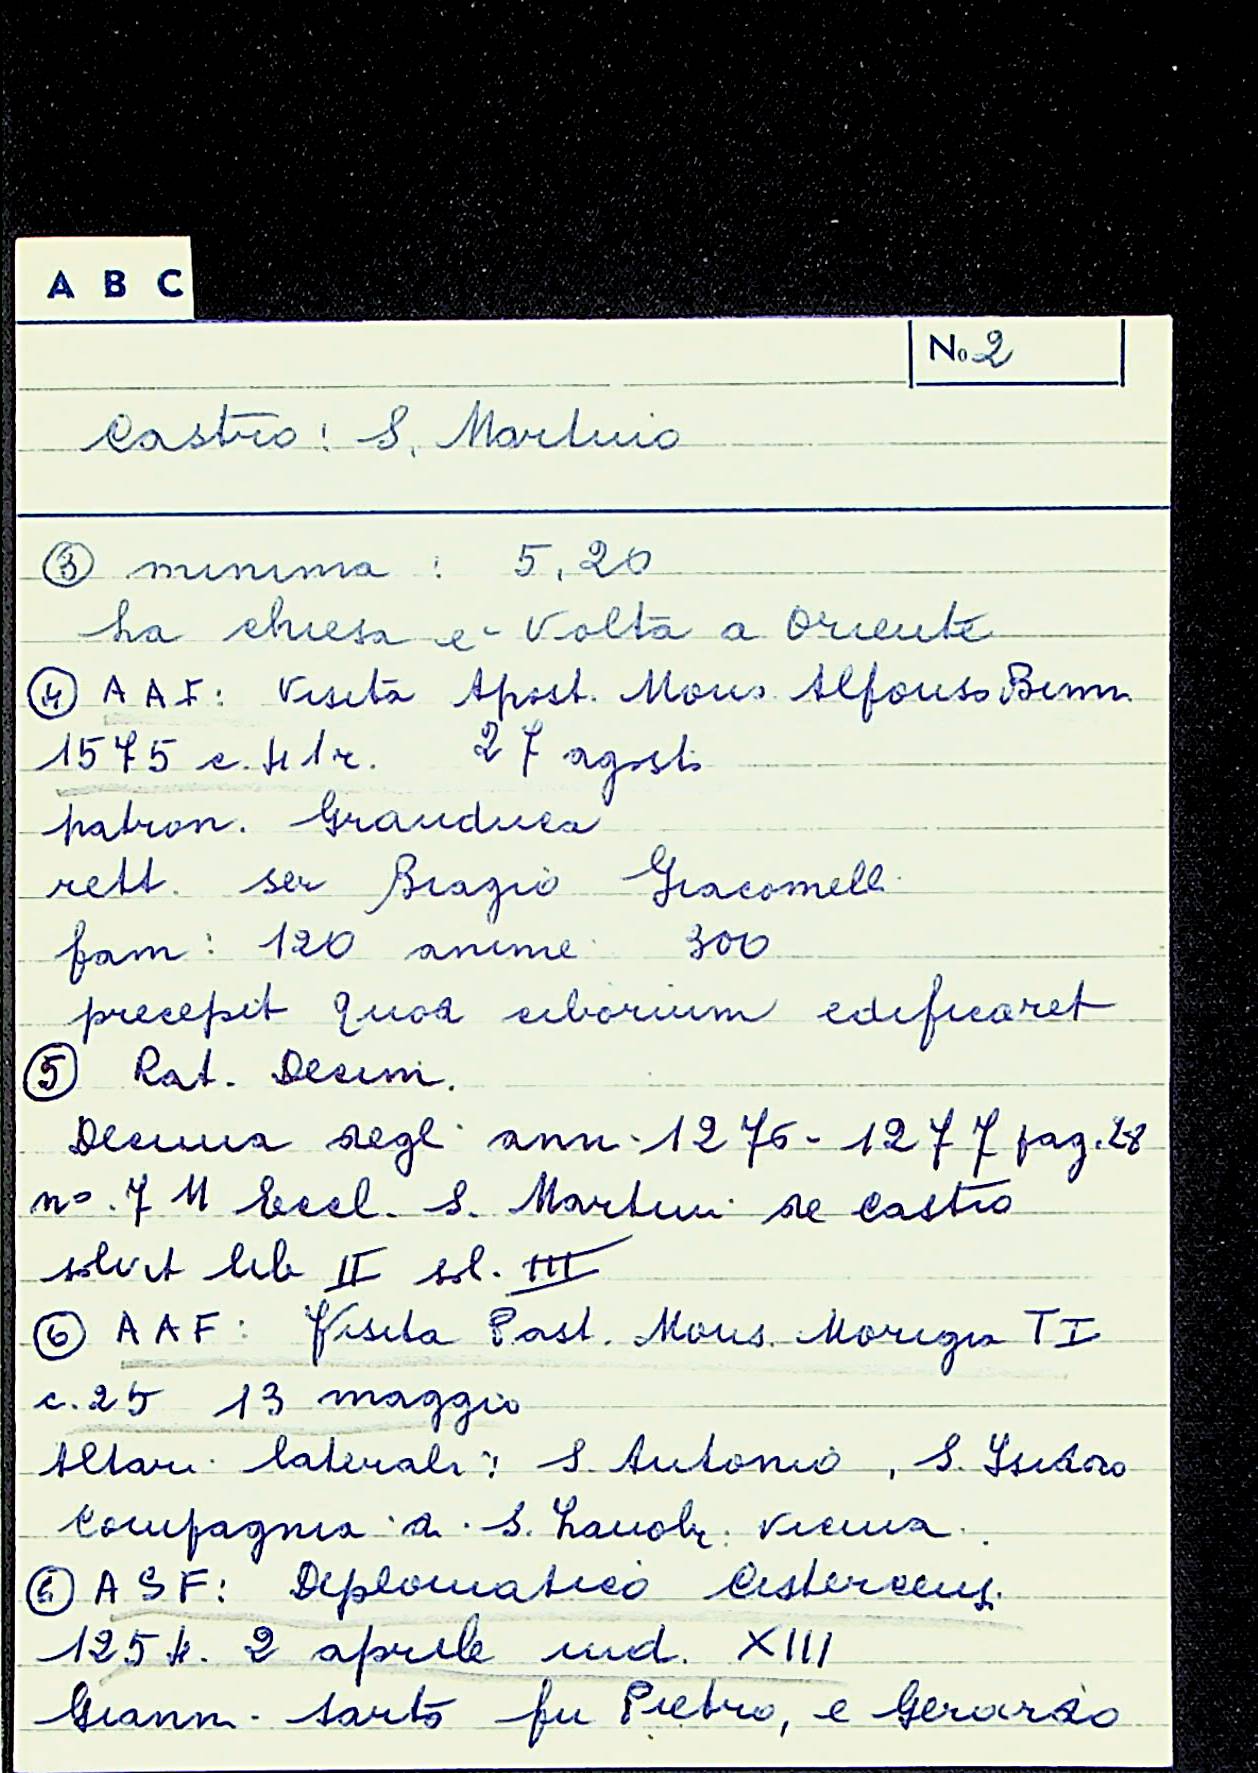 A B C
No 2
Castro: S. Martino
③ minima : 5,20
La chiesa e- volta a Oriente
④ AAF: Visita Apost. Mons. Alfonso Binni
1575 c. 41r. 27 agosto
patron. Granduca
rett. ser Biagio Giacomelli
fam: 120 anime 300
precepit quod ciborium edificaret
⑤ Rat. Decim.
Decima degli anni 1276-1277 pag. 28
no. 711 Eccl. S. Martini de Castro
solvit lib II sol. III
⑥ AAF: Visita Past. Mons. Morigia TI
c. 25 13 maggio
Altari laterali: S. Antonio, S. Isidoro
Compagnia a S. Zanobi vicina.
⑥ ASF: Diplomatico Cistercens.
1254. 2 aprile ind. XIII
Gianni sarto fu Pietro, e Gerardo